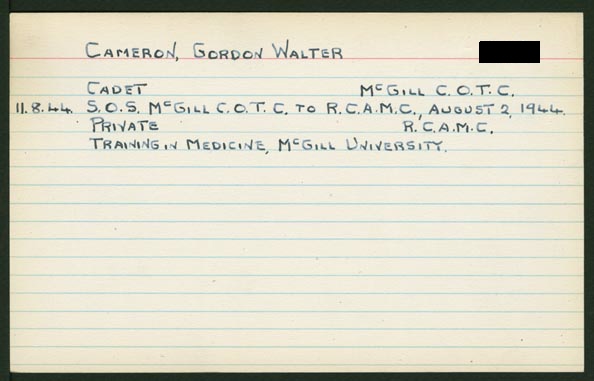 CAMERON, GORDON WALTER
CADET McGILL C.O.T.C.
11.8.44. S.O.S. McGILL C.O.T.C. TO R.C.A.M.C., AUGUST 2, 1944.
PRIVATE R.C.A.M.C.
TRAINING IN MEDICINE, McGILL UNIVERSITY.